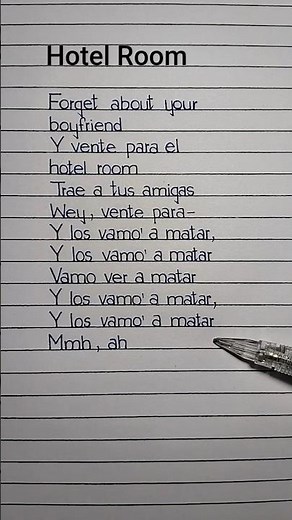 Hotel Room
Forget about your
boyfriend
Y vente para el
hotel room
Trae a tus amigas
Wey, vente para-
Y los vamo' a matar,
Y los vamo' a matar
Vamo ver a matar
Y los vamo' a matar,
Y los vamo' a matar
Mmh, ah